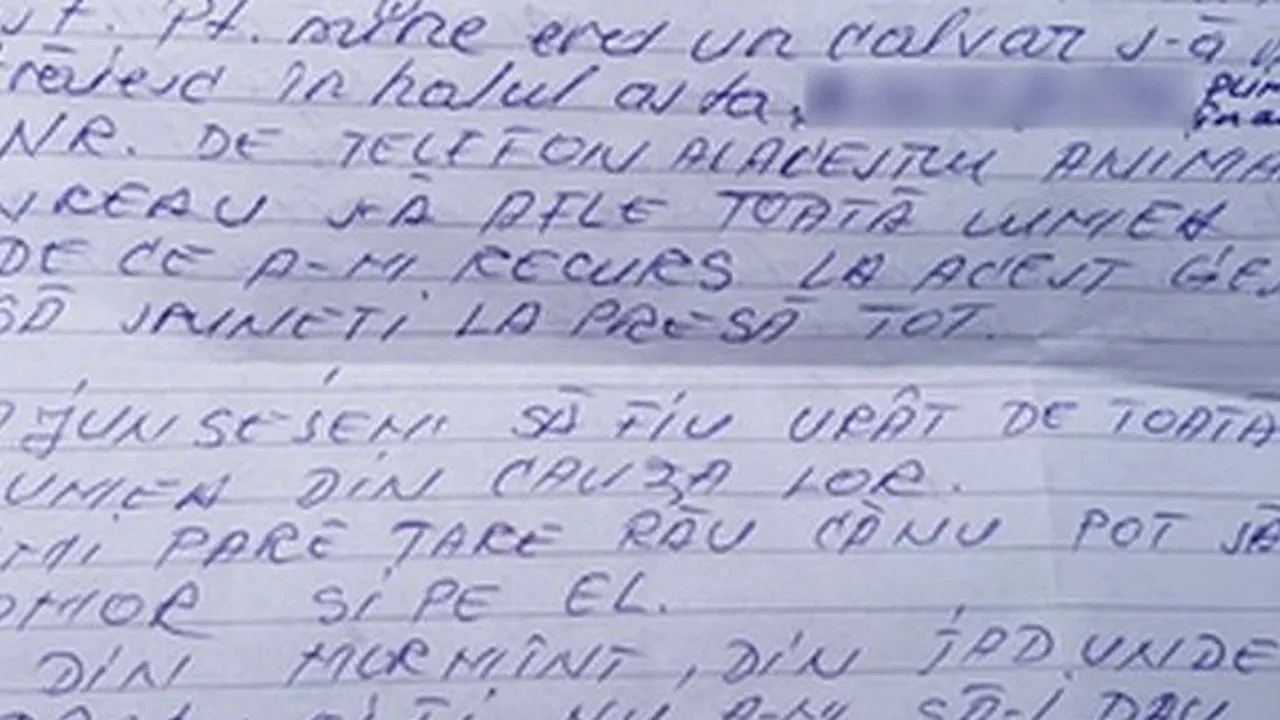 Pt. mine era un calvar s-ă
trăiesc în halul asta,
NR. DE TELEFON ALACESTUI ANIMA
VREAU S-Ă AFLE TOATĂ LUMIEA
DE CE A-MI RECURS LA ACEST GES
SĂ SPUNETI LA PRESĂ TOT.
AJUNSESEMI SĂ FIU URÂT DE TOATA
LUMIEA DIN CAUZA LOR.
ÎMI PARE TARE RĂU CĂNU POT SĂ
OMOR SI PE EL.
DIN MORMÎNT, DIN IAD UNDE
NU A-MI SĂ-I DAU